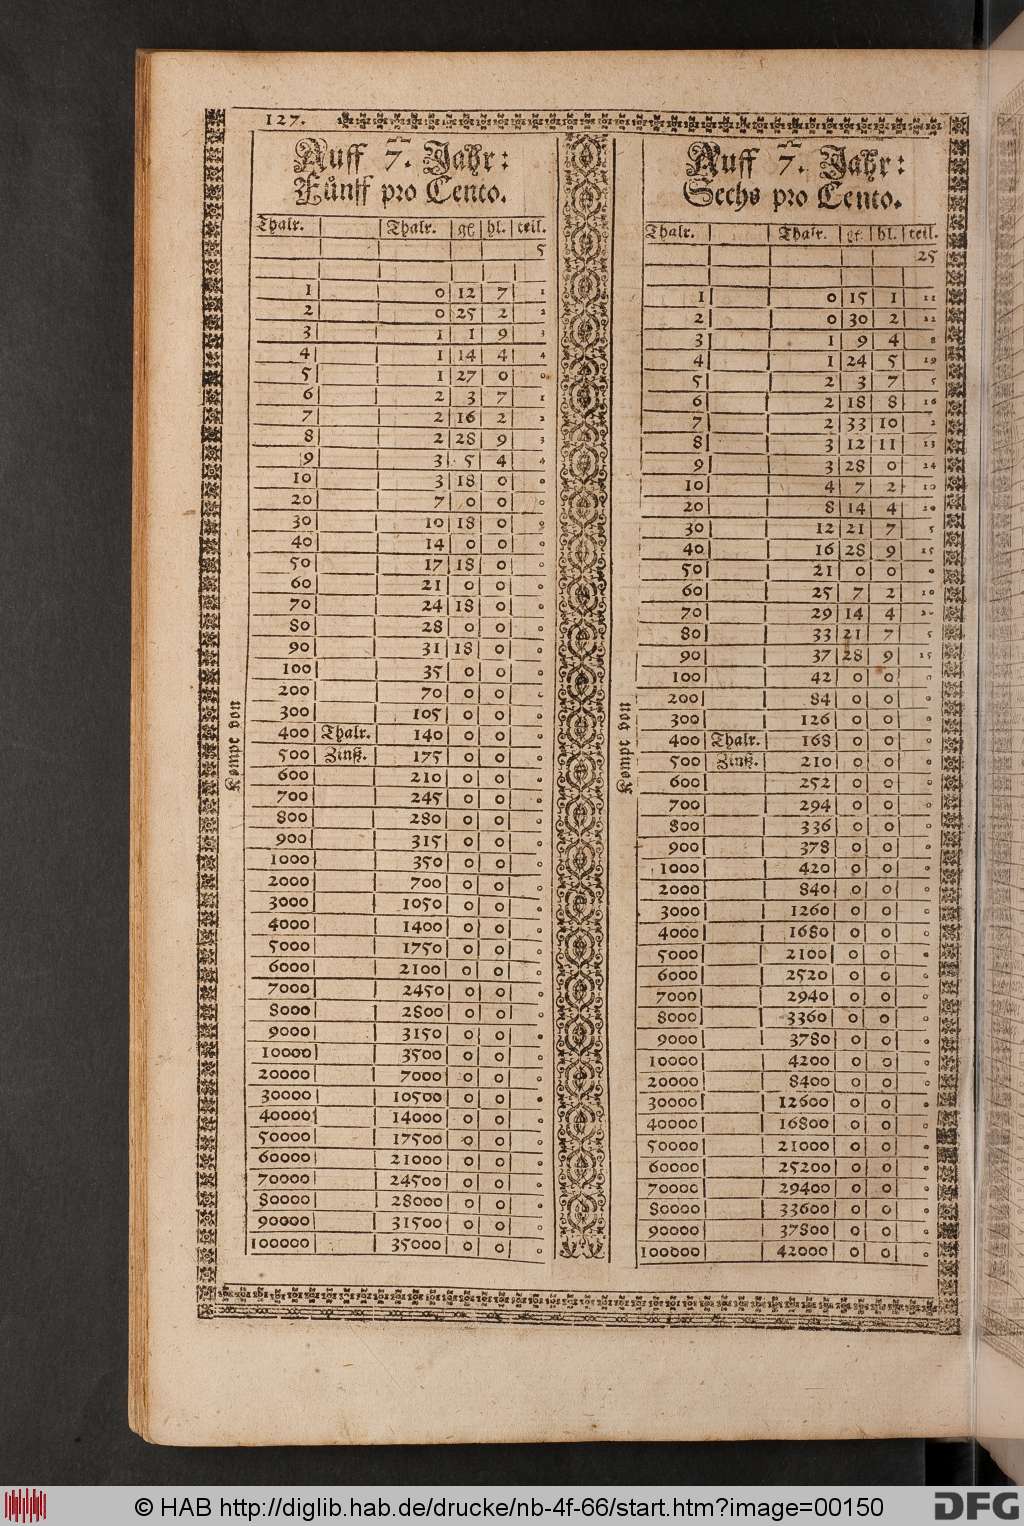 127.
Auff 7. Jahr:
Fünff pro Cento.
Thalr. Thalr. gl hl. teil.
5
1 0 12 7 1
2 0 25 2 2
3 1 1 9 3
4 1 14 4 4
5 1 27 0 0
6 2 3 7 1
7 2 16 2 2
8 2 28 9 3
9 3 5 4 4
10 3 18 0 0
20 7 0 0 0
30 10 18 0 0
40 14 0 0 0
50 17 18 0 0
60 21 0 0 0
70 24 18 0 0
80 28 0 0 0
90 31 18 0 0
100 35 0 0 0
200 70 0 0 0
300 105 0 0 0
400 Thalr. 140 0 0 0
500 Zinß. 175 0 0 0
600 210 0 0 0
700 245 0 0 0
800 280 0 0 0
900 315 0 0 0
1000 350 0 0 0
2000 700 0 0 0
3000 1050 0 0 0
4000 1400 0 0 0
5000 1750 0 0 0
6000 2100 0 0 0
7000 2450 0 0 0
8000 2800 0 0 0
9000 3150 0 0 0
10000 3500 0 0 0
20000 7000 0 0 0
30000 10500 0 0 0
40000 14000 0 0 0
50000 17500 0 0 0
60000 21000 0 0 0
70000 24500 0 0 0
80000 28000 0 0 0
90000 31500 0 0 0
100000 35000 0 0 0
Kompt von
Auff 7. Jahr:
Sechs pro Cento.
Thalr. Thalr. gl. hl. teil.
25
1 0 15 1
2 0 30 2
3 1 9 4 8
4 1 24 5 19
5 2 3 7 5
6 2 18 8 16
7 2 33 10 2
8 3 12 11 13
9 3 28 0 24
10 4 7 2 10
20 8 14 4 20
30 12 21 7 5
40 16 28 9 15
50 21 0 0 0
60 25 7 2 10
70 29 14 4 20
80 33 21 7 5
90 37 28 9 15
100 42 0 0 0
200 84 0 0 0
300 126 0 0 0
400 Thalr. 168 0 0 0
500 Zinß. 210 0 0 0
600 252 0 0 0
700 294 0 0 0
800 336 0 0 0
900 378 0 0 0
1000 420 0 0 0
2000 840 0 0 0
3000 1260 0 0 0
4000 1680 0 0 0
5000 2100 0 0 0
6000 2520 0 0 0
7000 2940 0 0 0
8000 3360 0 0 0
9000 3780 0 0 0
10000 4200 0 0 0
20000 8400 0 0 0
30000 12600 0 0 0
40000 16800 0 0 0
50000 21000 0 0 0
60000 25200 0 0 0
70000 29400 0 0 0
80000 33600 0 0 0
90000 37800 0 0 0
100000 42000 0 0 0
Kompt von
© HAB http://diglib.hab.de/drucke/nb-4f-66/start.htm?image=00150
DFG